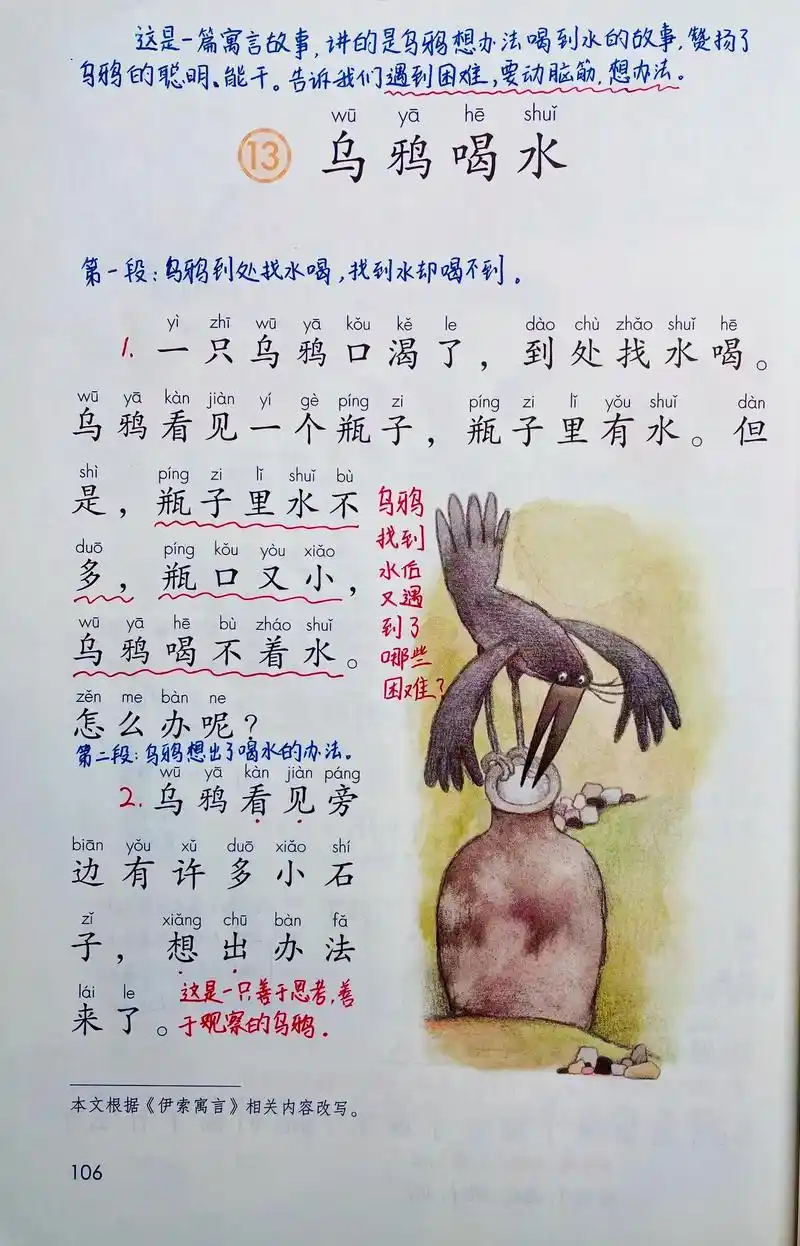 这是一篇寓言故事,讲的是乌鸦想办法喝到水的故事,赞扬了
乌鸦的聪明、能干。告诉我们遇到困难,要动脑筋,想办法。
wū yā hē shuǐ
13 乌鸦喝水
第一段:乌鸦到处找水喝,找到水却喝不到。
yì zhī wū yā kǒu kě le dào chù zhǎo shuǐ hē
1. 一只乌鸦口渴了,到处找水喝。
wū yā kàn jiàn yí gè píng zi píng zi lǐ yǒu shuǐ dàn
乌鸦看见一个瓶子,瓶子里有水。但
shì píng zi lǐ shuǐ bù
是,瓶子里水不
duō píng kǒu yòu xiǎo
多,瓶口又小,
wū yā hē bù zháo shuǐ
乌鸦喝不着水。
zěn me bàn ne
怎么办呢?
乌鸦
找到
水后
又遇
到了
哪些
困难?
第二段:乌鸦想出了喝水的办法。
wū yā kàn jiàn páng
2. 乌鸦看见旁
biān yǒu xǔ duō xiǎo shí
边有许多小石
zǐ xiǎng chū bàn fǎ
子,想出办法
lái le
来了。
这是一只善于思考,善
于观察的乌鸦.
本文根据《伊索寓言》相关内容改写。
106